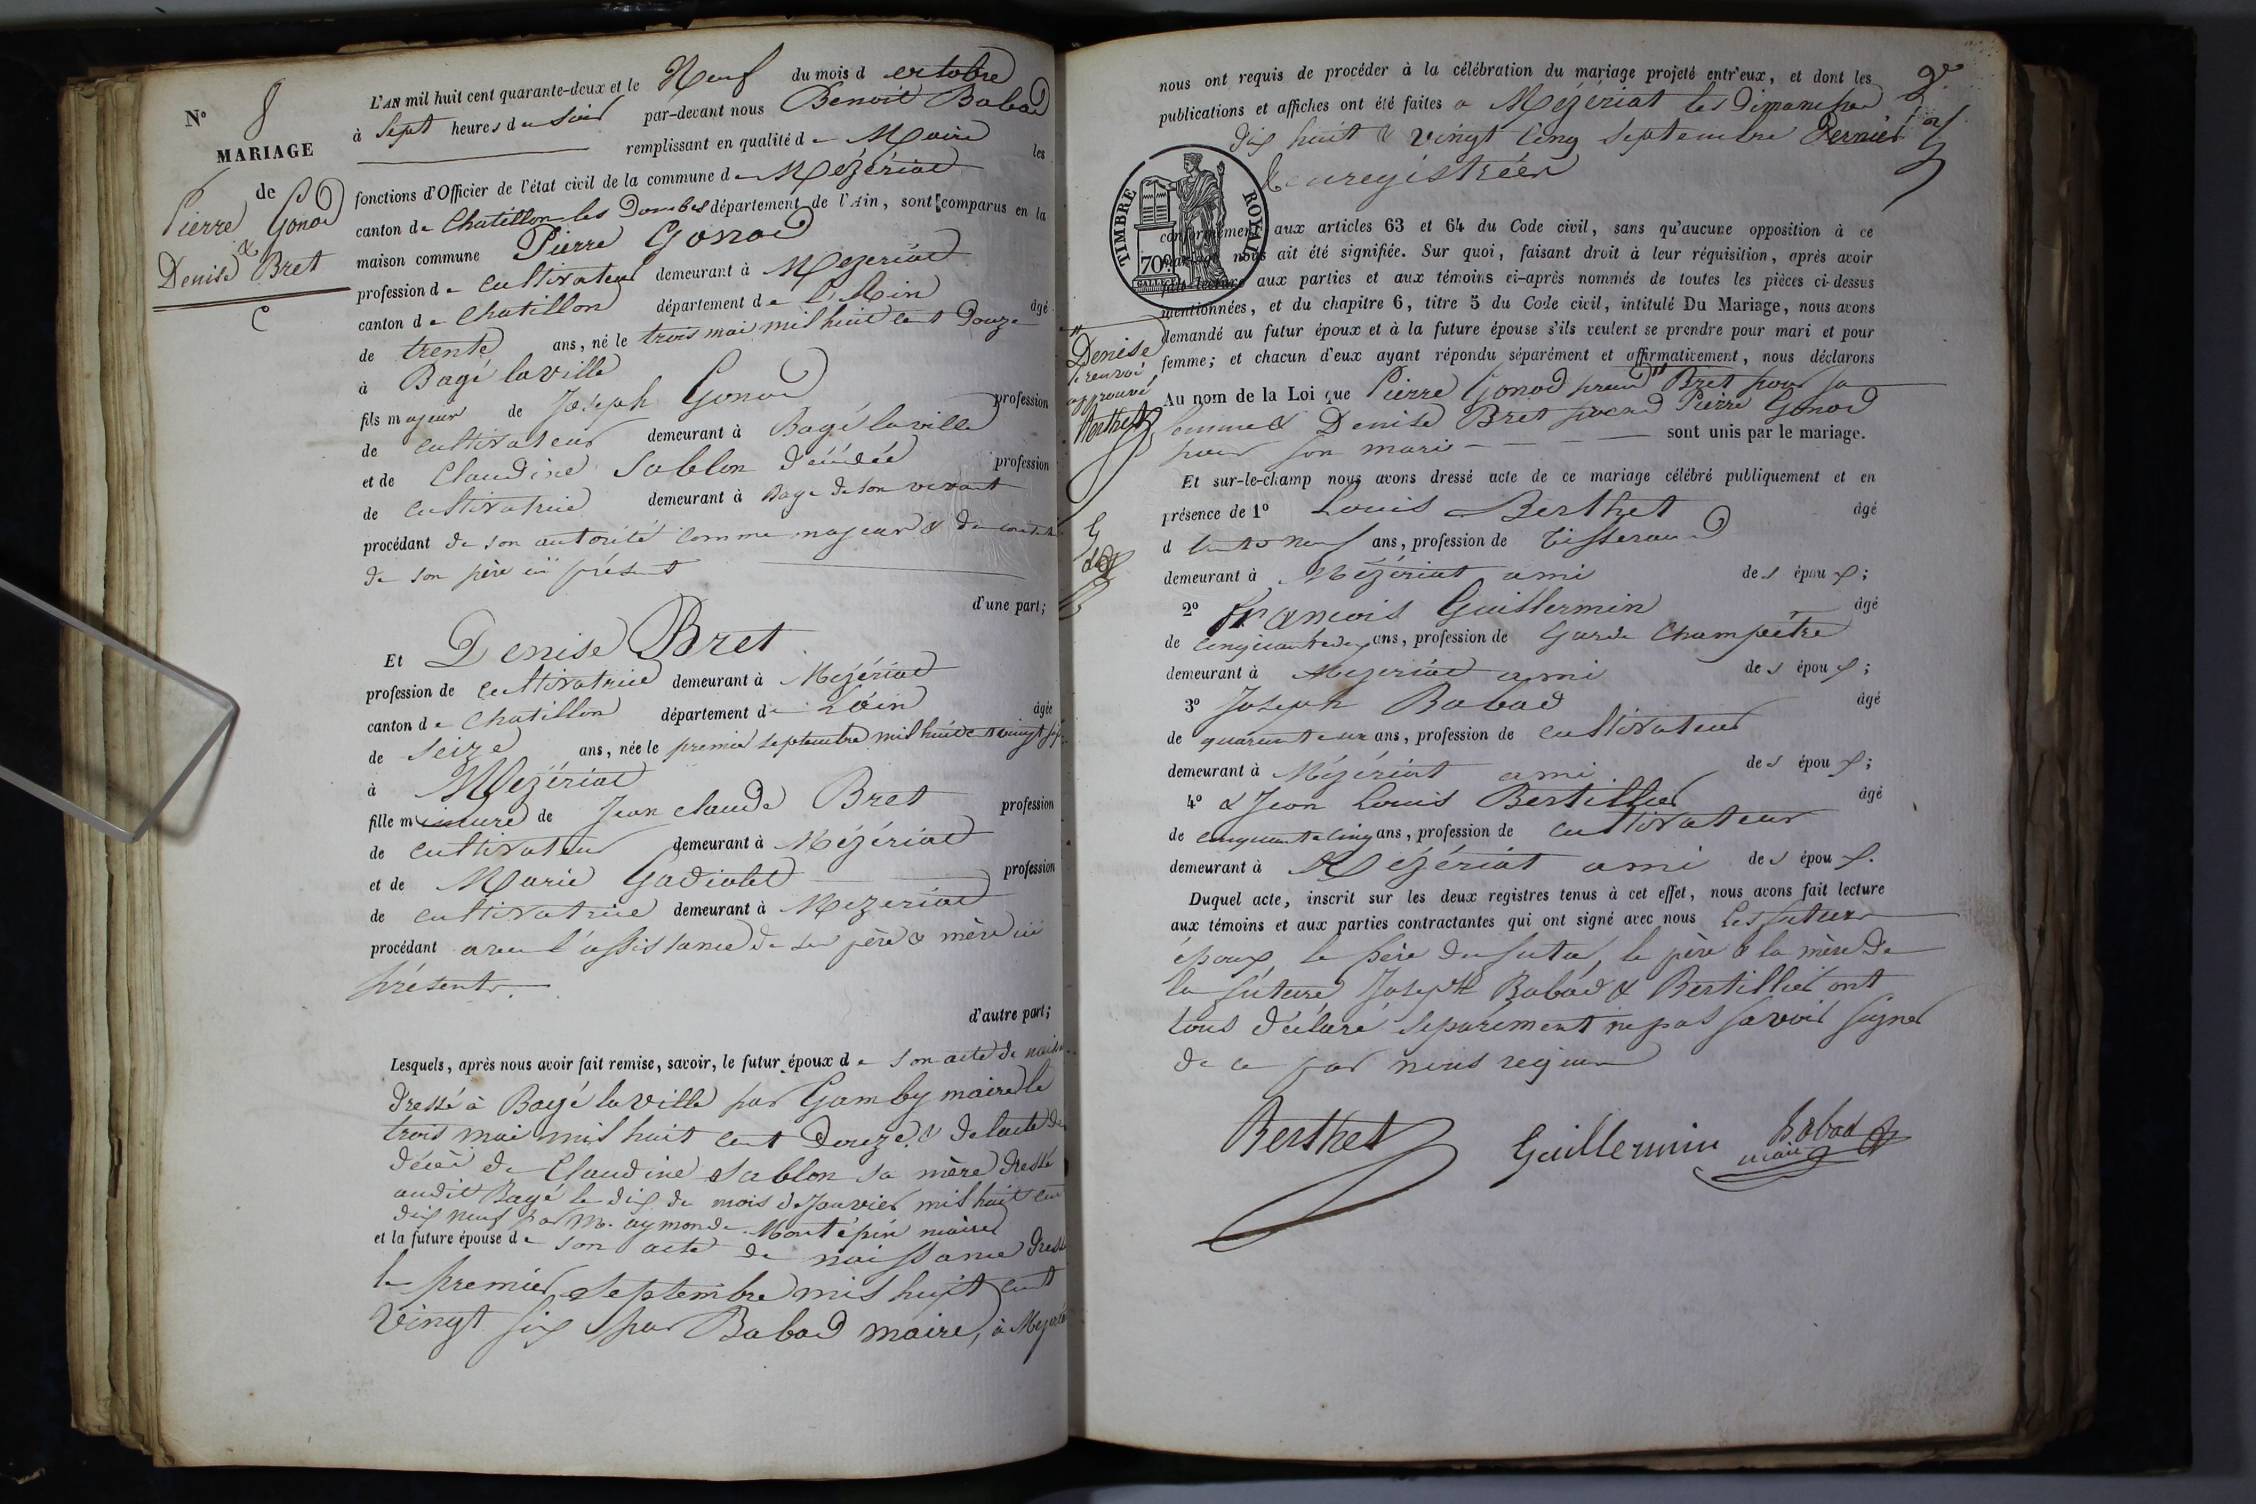 N° 8
MARIAGE
de
Pierre Gonod
&
Denise Bret
L'AN mil huit cent quarante-deux et le Neuf du mois d octobre
à sept heures du soir par-devant nous Benoit Babad
remplissant en qualité de Maire les
fonctions d'Officier de l'état civil de la commune de Mézériat
canton de Chatillon les Dombes département de l'Ain, sont comparus en la
maison commune Pierre Gonod
profession de cultivateur demeurant à Mezeriat
canton de Chatillon département de l'Ain âgé
de trente ans, né le trois mai mil huit cent douze
à Bagé la ville
fils majeur de Joseph Gonod profession
de cultivateur demeurant à Bagé la ville
et de Claudine Sablon décédée profession
de cultivatrice demeurant à Bagé de son vivant
procédant de son autorité comme majeur & du
de son père ici présent
d'une part;
Et Denise Bret
profession de cultivatrice demeurant à Mezériat
canton de Chatillon département de L'ain âgée
de seize ans, née le premier septembre mil huit cent vingt six
à Mezériat
fille mineure de Jean claude Bret profession
de cultivateur demeurant à Mézériat
et de Marie Gadiolet profession
de cultivatrice demeurant à Mezeriat
procédant avec l'assistance de ses père & mère ici
présents.
d'autre part;
Lesquels, après nous avoir fait remise, savoir, le futur époux de son acte de
dressé à Bagé la ville par Gamby maire le
trois mai mil huit cent douze, & de l'acte de
décès de Claudine Sablon sa mère dressé
audit Bagé le dix du mois de Janvier mil huit cent
dix neuf par M. aymon de Montépin maire
et la future épouse de son acte de naissance dressé
le premier septembre mil huit cent
vingt six par Babad maire, à Mezériat
nous ont requis de procéder à la célébration du mariage projeté entr'eux, et dont les
publications et affiches ont été faites a Mézériat les dimanches
dix huit & vingt cinq septembre Dernier
enregistrées
TIMBRE ROYAL
70
conformément aux articles 63 et 64 du Code civil, sans qu'aucune opposition à ce
mariage nous ait été signifiée. Sur quoi, faisant droit à leur réquisition, après avoir
fait lecture aux parties et aux témoins ci-après nommés de toutes les pièces ci-dessus
mentionnées, et du chapitre 6, titre 5 du Code civil, intitulé Du Mariage, nous avons
demandé au futur époux et à la future épouse s'ils veulent se prendre pour mari et pour
femme; et chacun d'eux ayant répondu séparément et affirmativement, nous déclarons
Au nom de la Loi que Pierre Gonod prend " Bret pour sa
femme & Denise Bret prend Pierre Gonod
pour son mari sont unis par le mariage.
" Denise
le renvoi
approuvé
Berthet
Et sur-le-champ nous avons dressé acte de ce mariage célébré publiquement et en
présence de 1° Louis Berthet âgé
d ans, profession de Tisserand
demeurant à Mézériat ami des époux;
2° François Guillermin âgé
de cinquante deux ans, profession de Garde Champêtre
demeurant à Mezeriat ami des époux;
3° Joseph Babad âgé
de ans, profession de cultivateur
demeurant à Mézériat ami des époux;
4° & Jean Louis Bertillier âgé
de cinquante cinq ans, profession de cultivateur
demeurant à Mézériat ami des époux.
Duquel acte, inscrit sur les deux registres tenus à cet effet, nous avons fait lecture
aux témoins et aux parties contractantes qui ont signé avec nous Les futurs
époux, le père du futur, le père & la mère de
la future, Joseph Babad & Bertillier ont
tous déclaré séparément ne pas savoir signer
de ce par nous requis
Berthet Guillermin Babad
maire